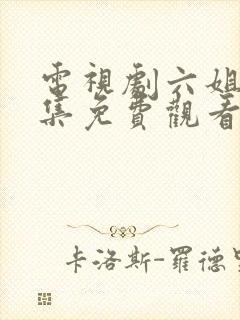 電視劇六姐
集免費觀看
卡洛斯-羅德里